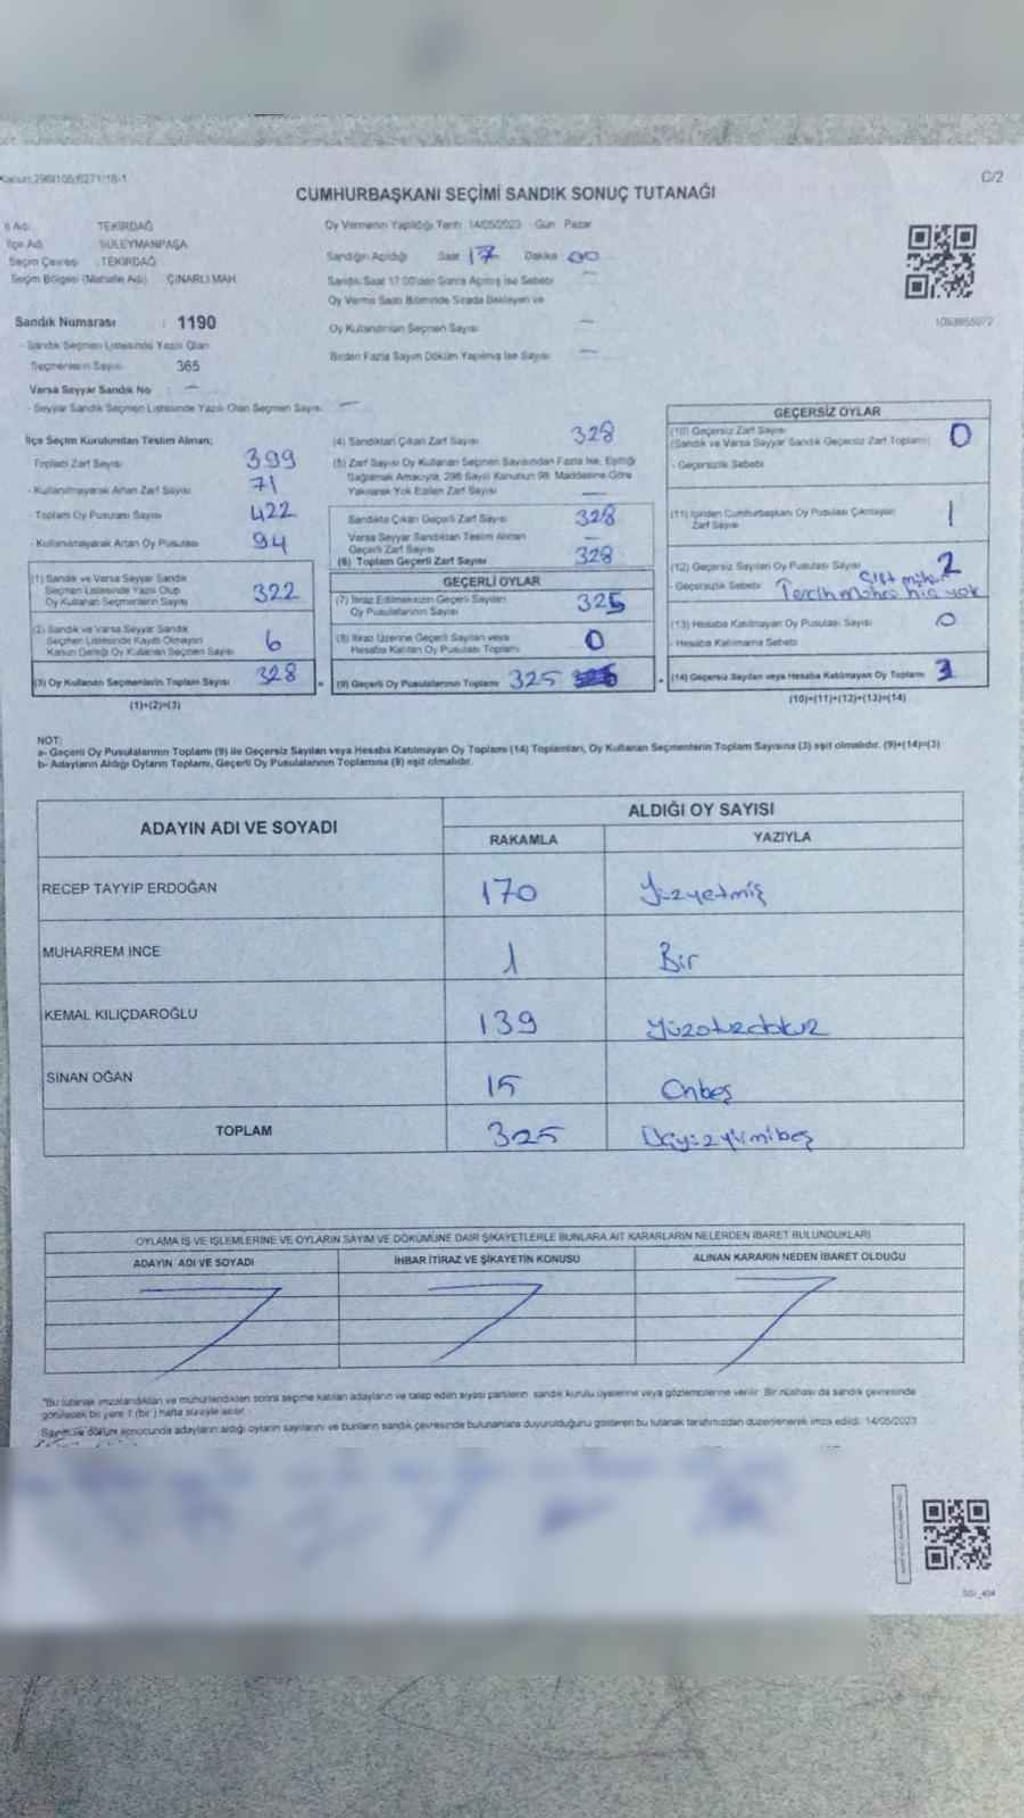 Kanun:298/105;6271/18-1
C/2
CUMHURBAŞKANI SEÇİMİ SANDIK SONUÇ TUTANAĞI
İl Adı: TEKİRDAĞ
İlçe Adı SÜLEYMANPAŞA
Seçim Çevresi : TEKİRDAĞ
Seçim Bölgesi (Mahalle Adı) ÇINARLI MAH.
Sandık Numarası : 1190
- Sandık Seçmen Listesinde Yazılı Olan
Seçmenlerin Sayısı 365
Varsa Seyyar Sandık No : —
- Seyyar Sandık Seçmen Listesinde Yazılı Olan Seçmen Sayısı —
Oy Vermenin Yapıldığı Tarih: 14/05/2023 Gün: Pazar
Sandığın Açıldığı Saat 17 Dakika 00
Sandık Saat 17:00'den Sonra Açılmış İse Sebebi —
Oy Verme Saati Bitiminde Sırada Bekleyen ve
Oy Kullandırılan Seçmen Sayısı —
Birden Fazla Sayım Döküm Yapılmış İse Sayısı —
İlçe Seçim Kurulundan Teslim Alınan;
- Toplam Zarf Sayısı 399
- Kullanılmayarak Artan Zarf Sayısı 71
- Toplam Oy Pusulası Sayısı 422
- Kullanılmayarak Artan Oy Pusulası 94
(1) Sandık ve Varsa Seyyar Sandık
Seçmen Listesinde Yazılı Olup
Oy Kullanan Seçmenlerin Sayısı 322
(2) Sandık ve Varsa Seyyar Sandık
Seçmen Listesinde Kaydı Olmayan
Kanun Gereği Oy Kullanan Seçmen Sayısı 6
(3) Oy Kullanan Seçmenlerin Toplam Sayısı 328
(1)+(2)=(3)
(4) Sandıktan Çıkan Zarf Sayısı 328
(5) Zarf Sayısı Oy Kullanan Seçmen Sayısından Fazla İse, Eşitliği
Sağlamak Amacıyla, 298 Sayılı Kanunun 98. Maddesine Göre
Yakılarak Yok Edilen Zarf Sayısı —
Sandıkta Çıkan Geçerli Zarf Sayısı 328
Varsa Seyyar Sandıktan Teslim Alınan
Geçerli Zarf Sayısı —
(6) Toplam Geçerli Zarf Sayısı 328
GEÇERLİ OYLAR
(7) İtiraz Edilmeksizin Geçerli Sayılan
Oy Pusulalarının Sayısı 325
(8) İtiraz Üzerine Geçerli Sayılan veya
Hesaba Katılan Oy Pusulası Toplamı 0
= (9) Geçerli Oy Pusulalarının Toplamı 325
GEÇERSİZ OYLAR
(10) Geçersiz Zarf Sayısı
(Sandık ve Varsa Seyyar Sandık Geçersiz Zarf Toplamı) 0
- Geçersizlik Sebebi
(11) İçinden Cumhurbaşkanı Oy Pusulası Çıkmayan
Zarf Sayısı 1
(12) Geçersiz Sayılan Oy Pusulası Sayısı 2
- Geçersizlik Sebebi Tercih mührü hiç yok
(13) Hesaba Katılmayan Oy Pusulası Sayısı 0
- Hesaba Katılmama Sebebi
+ (14) Geçersiz Sayılan veya Hesaba Katılmayan Oy Toplamı 3
(10)+(11)+(12)+(13)=(14)
1093855072
NOT:
a- Geçerli Oy Pusulalarının Toplamı (9) ile Geçersiz Sayılan veya Hesaba Katılmayan Oy Toplamı (14) Toplamları, Oy Kullanan Seçmenlerin Toplam Sayısına (3) eşit olmalıdır. (9)+(14)=(3)
b- Adayların Aldığı Oyların Toplamı, Geçerli Oy Pusulalarının Toplamına (9) eşit olmalıdır.
ADAYIN ADI VE SOYADI
ALDIĞI OY SAYISI
RAKAMLA YAZIYLA
RECEP TAYYİP ERDOĞAN 170 Yüzyetmiş
MUHARREM İNCE 1 Bir
KEMAL KILIÇDAROĞLU 139 Yüzotuzdokuz
SİNAN OĞAN 15 Onbeş
TOPLAM 325 Üçyüzyirmibeş
OYLAMA İŞ VE İŞLEMLERİNE VE OYLARIN SAYIM VE DÖKÜMÜNE DAİR ŞİKAYETLERLE BUNLARA AİT KARARLARIN NELERDEN İBARET BULUNDUKLARI
ADAYIN ADI VE SOYADI İHBAR İTİRAZ VE ŞİKAYETİN KONUSU ALINAN KARARIN NEDEN İBARET OLDUĞU
"Bu tutanak imzalandıktan ve mühürlendikten sonra seçime katılan adayların ve talep edilen siyasi partilerin sandık kurulu üyelerine veya gözlemcilerine verilir. Bir nüshası da sandık çevresinde
görülecek bir yere 1 (bir) hafta süreyle asılır.
Sayım ve döküm sonucunda adayların aldığı oyların sayılarını ve bunların sandık çevresinde bulunanlara duyurulduğunu gösteren bu tutanak tarafımızdan düzenlenerek imza edildi. 14/05/2023